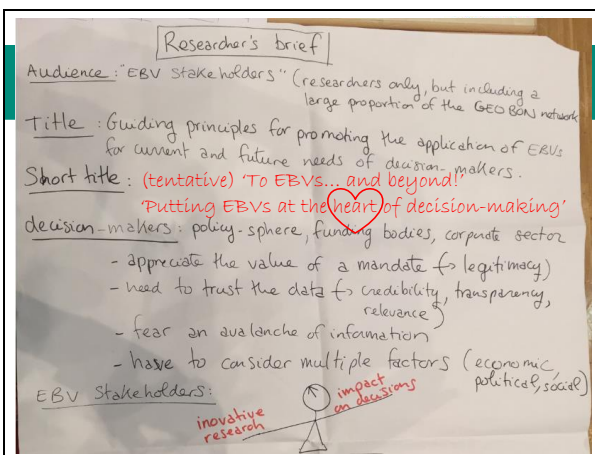 Researcher's brief
Audience : "EBV Stakeholders" (researchers only, but including a
large proportion of the GEO BON network
Title : Guiding principles for promoting the application of EBVs
for current and future needs of decision-makers.
Short title : (tentative) 'To EBVs... and beyond!'
'Putting EBVs at the heart of decision-making'
decision-makers : policy-sphere, funding bodies, corporate sector
- appreciate the value of a mandate (-> legitimacy)
- need to trust the data (-> credibility, transparency,
relevance)
- fear an avalanche of information
- have to consider multiple factors (economic,
political, social)
EBV Stakeholders :
impact
on decisions
inovative
research